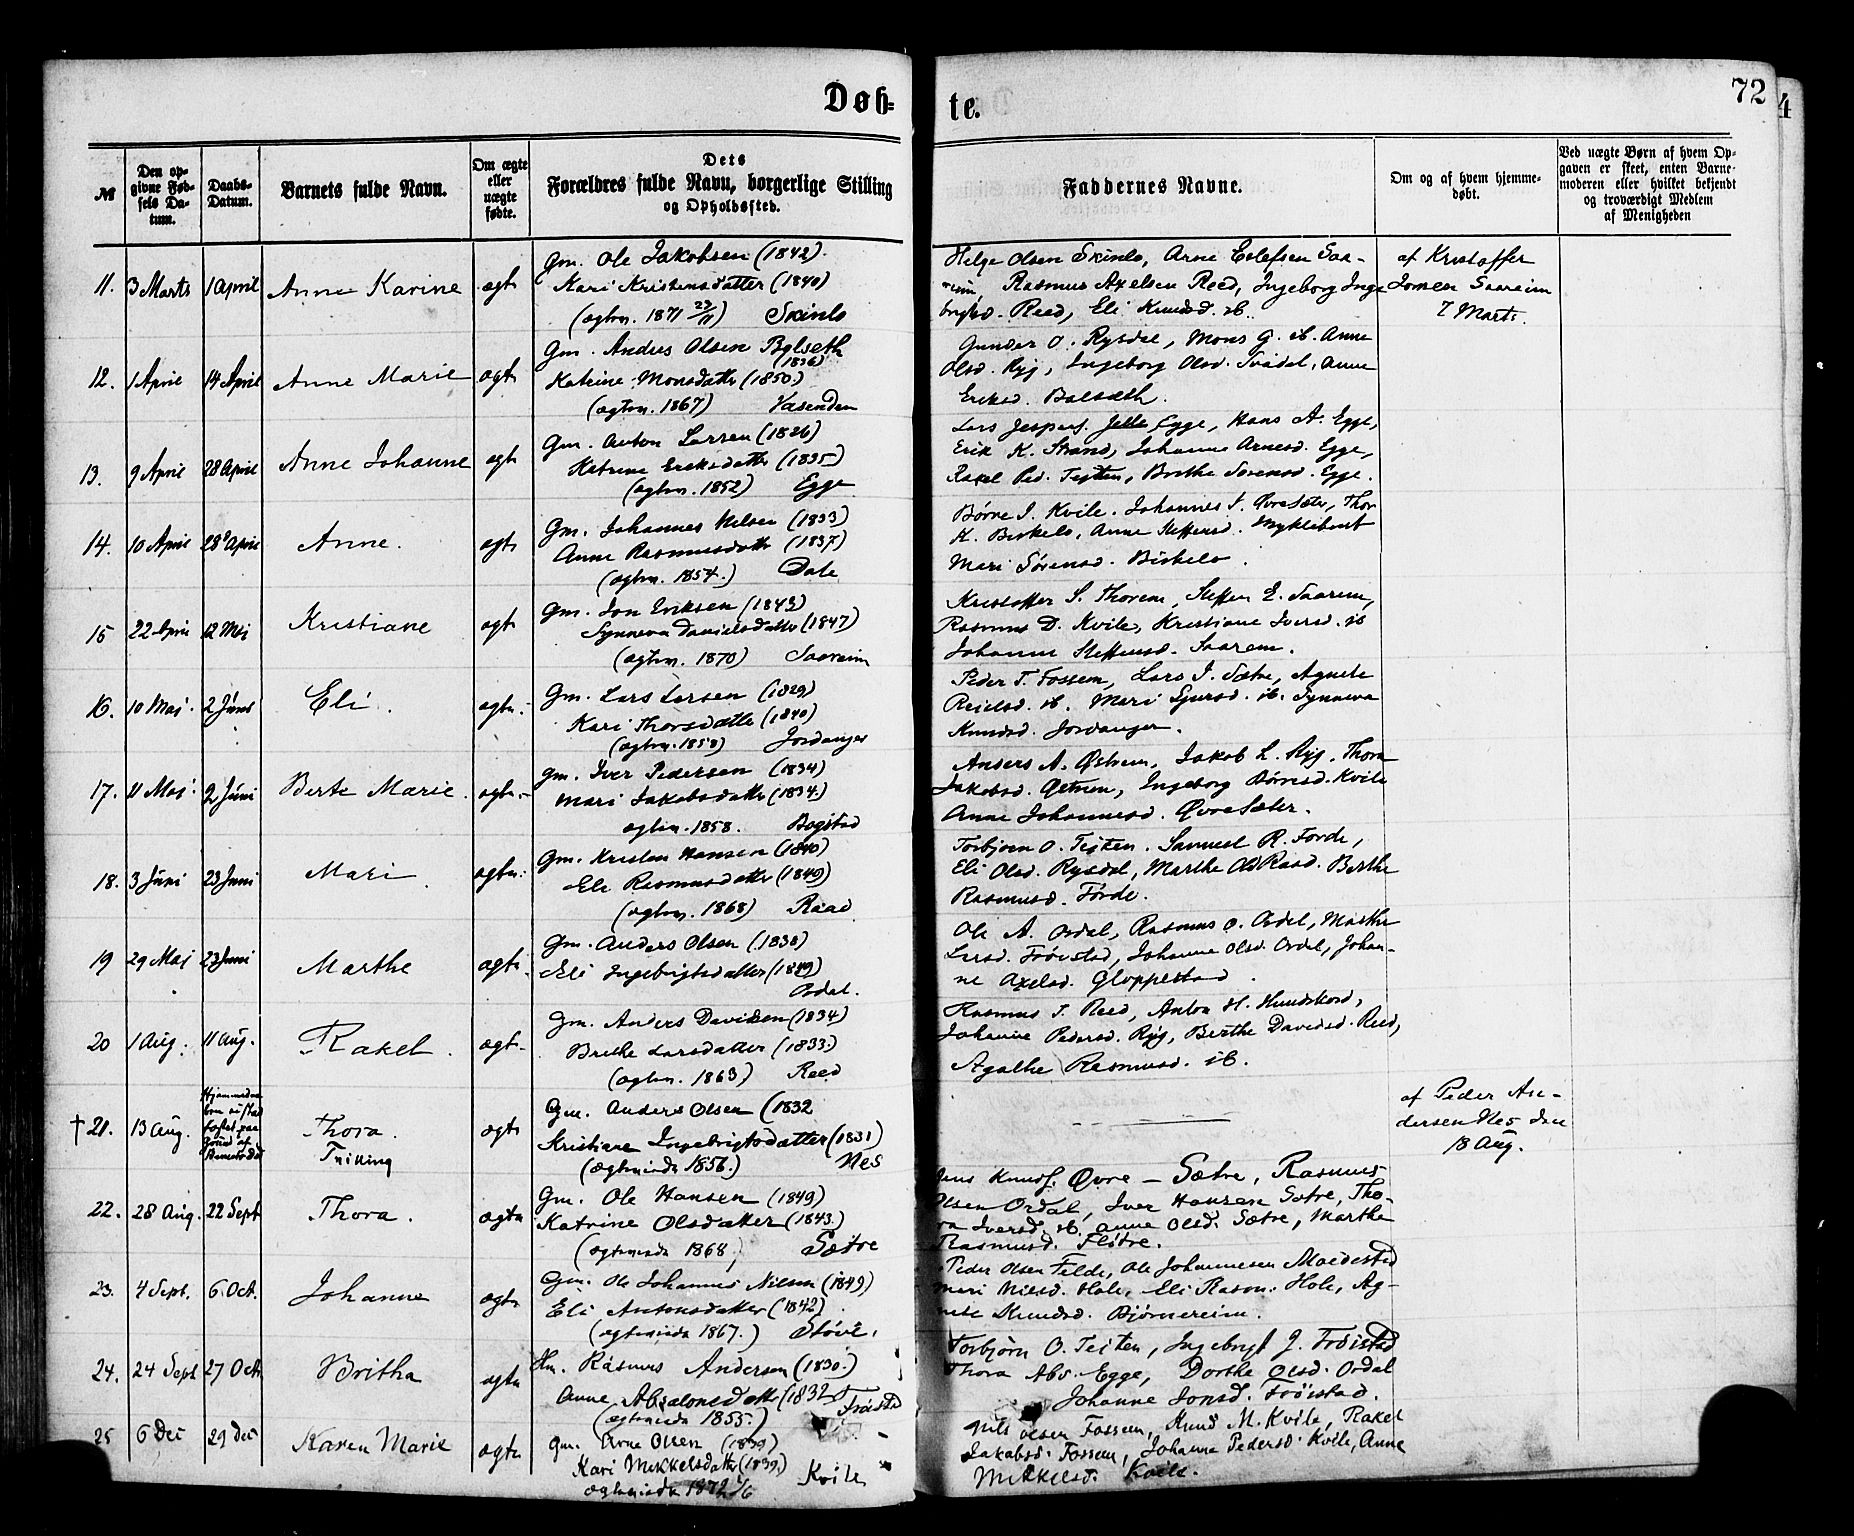 Døb=
te.
72
4
№
Den op-
givne Fød-
sels Da-
tum.
Daabs-
Datum.
Barnets fulde Navn.
Om ægte
eller
uægte
fødte.
Dets
Forældres fulde Navn, borgerlige Stilling
og Opholdssted.
Faddernes Navne.
Om og af hvem hjemme-
døbt.
Ved uægte Børn af hvem Op-
gaven er skeet, enten Barne-
moderen eller hvilket bekjendt
og troværdigt Medlem
af Menigheden
11. 3 Marts 1 April Anne Karine ægt
Gm. Ole Jakobsen (1842).
Kari Kristensdatter (1840)
(ægtev. 1871 23/11) Skinlo
Helge Olsen Skinlo, Arne Eelefsen Saa-
reim, Rasmus Axelsen Reed, Ingeborg Inge
brigtsd. Reed, Eli Knudsd. ib.
af Kristoffer
Jonsen Saareim
7 Marts.
12. 1 April 14 April Anne Marie ægt
Gm. Andres Olsen Bolseth
(1836)
Katrine Monsdatter (1850.)
(ægtev. 1867) Vasenden
Gunder O. Rysdal, Mons G. ib. Anne
Olsd. Ryg, Ingeborg Olsd. Svadal, Anne
Eriksd. Bolsæth.
13. 9 April 28 April Anne Johanne ægt
Gm. Anton Larsen (1826)
Katrine Eriksdatter (1835)
(ægtev. 1852) Egge
Lars Jespers. Egge, Hans A. Egge,
Erik K. Strand, Johanne Arnesd. Egge,
Rakel Ped. Tejten, Brithe Sørensd. Egge.
14. 10 April 28 April Anne. ægt
Gm. Johannes Nilsen (1833)
Anne Rasmusdatter (1837)
(ægtev. 1854.) Dale
Børne J. Kvile. Johannes S. Øvresæter, Thor
K. Birkelo, Anne Steffensd. Myklebust
Mari Sørensd. Birkelo.
15 22 April 12 Mej Kristiane ægt
Gm. Jon Eriksen (1843)
Synneva Danielsdatter (1847)
(ægtev. 1870) Saareim
Kristoffer S. Thorem, Steffen E. Saarem,
Rasmus D. Kvile, Kristiane Iversd. ib
Johanne Steffensd. Saarem.
16. 10 Maj 2 Juni Eli. ægte.
Gm. Lars Larsen (1829)
Kari Thorsdatter (1840)
(ægtev. 1858) Jordanger
Peder T. Fossem, Lars J. Sætre, Agnete
Reielsd. ib. Mari Sjursd. ib. Synneva
Knudsd. Jordanger.
17. 11 Maj 2 Juni Berte Marie. ægte.
Gm. Iver Pedersen (1834)
Mari Jakobsdatter (1834.)
ægtev. 1858. Bogstad
Anders A. Østrem, Jakob L. Ryg. Thora
Jakobsd. Østrem, Ingeborg Børnesd. Kvile
Anne Johannesd. Øvresæter.
18. 3 Juni 23 Juni Mari. ægte.
Gm. Kristen Hansen (1840)
Eli Rasmusdatter (1849)
(ægtev. 1868) Raad
Torbjørn O. Tejten. Samuel R. Førde,
Eli Olsd. Rysdal, Marthe Raad. Berthe
Rasmusd. Førde.
19 29 Maj 23 Juni Marthe ægte
Gm. Anders Olsen (1838)
Eli Ingebrigtsdatter (1839)
Ordal.
Ole A. Ordal, Rasmus O. Ordal, Marthe
Larsd. Frøistad, Johanne Olsd. Ordal, Johan-
ne Axelsd. Gloppestad.
20 1 Aug. 11 Aug. Rakel. ægt.
Gm. Anders Davidsen (1834)
Brithe Larsdatter (1833.)
(ægtev. 1863) Reed
Rasmus J. Reed, Anton H. Hundskord,
Johanne Pedersd. Ryg, Berthe Davidsd. Reed,
Agathe Rasmusd. ib.
† 21. 13 Aug. Thora. ægte
Tvilling
Gm. Anders Olsen (1832
Kristiane Ingebrigtsdatter (1831)
(ægteviede 1856.) Nes
af Peder An-
dersen Nes den
18 Aug.
22. 28 Aug. 22 Sept Thora. ægte
Gm. Ole Hansen (1849)
Katrine Olsdatter (1843.)
(ægteviede 1868) Sætre
Jens Knuds. Øvre – Sætre, Rasmus
Olsen Ordal, Iver Hansen Sætre, Tho-
ra Iversd. ib. Anne Olsd. Sætre, Marthe
Rasmusd. Fløtre.
23. 4 Sept. 6 Oct. Johanne ægte
Gm. Ole Johannes Nilsen (1849)
Eli Antonsdatter (1842).
(ægteviede 1867.) Støve.
Peder Olsen Felde, Ole Johannesen Moldestad
Mari Nilsd. Hole, Eli Rasm. Hole, Ag-
nete Knudsd. Bjørnereim.
24. 24 Sept 27 Oct. Britha ægte
Hm. Rasmus Andersen (1830.)
Anne Absalonsdatter (1832
(ægteviede 1855.) Frøistad
Torbjørn O. Tejten, Ingebrigt J. Frøistad
Thora Abs. Egge, Dorthe Olsd. Ordal
Johanne Jonsd. Frøistad.
25 6 Dec 29 Dec Karen Marie ægte
Gm. Arne Olsen (1839)
Kari Mikkelsdatter (1839.)
ægteviede 1872 1/6 Kvile
Nils Olsen Fossem, Knud M. Kvile, Rakel
Jakobsd. Fossem, Johanne Pedersd. Kvile, Anne
Mikkelsd. Kvile.